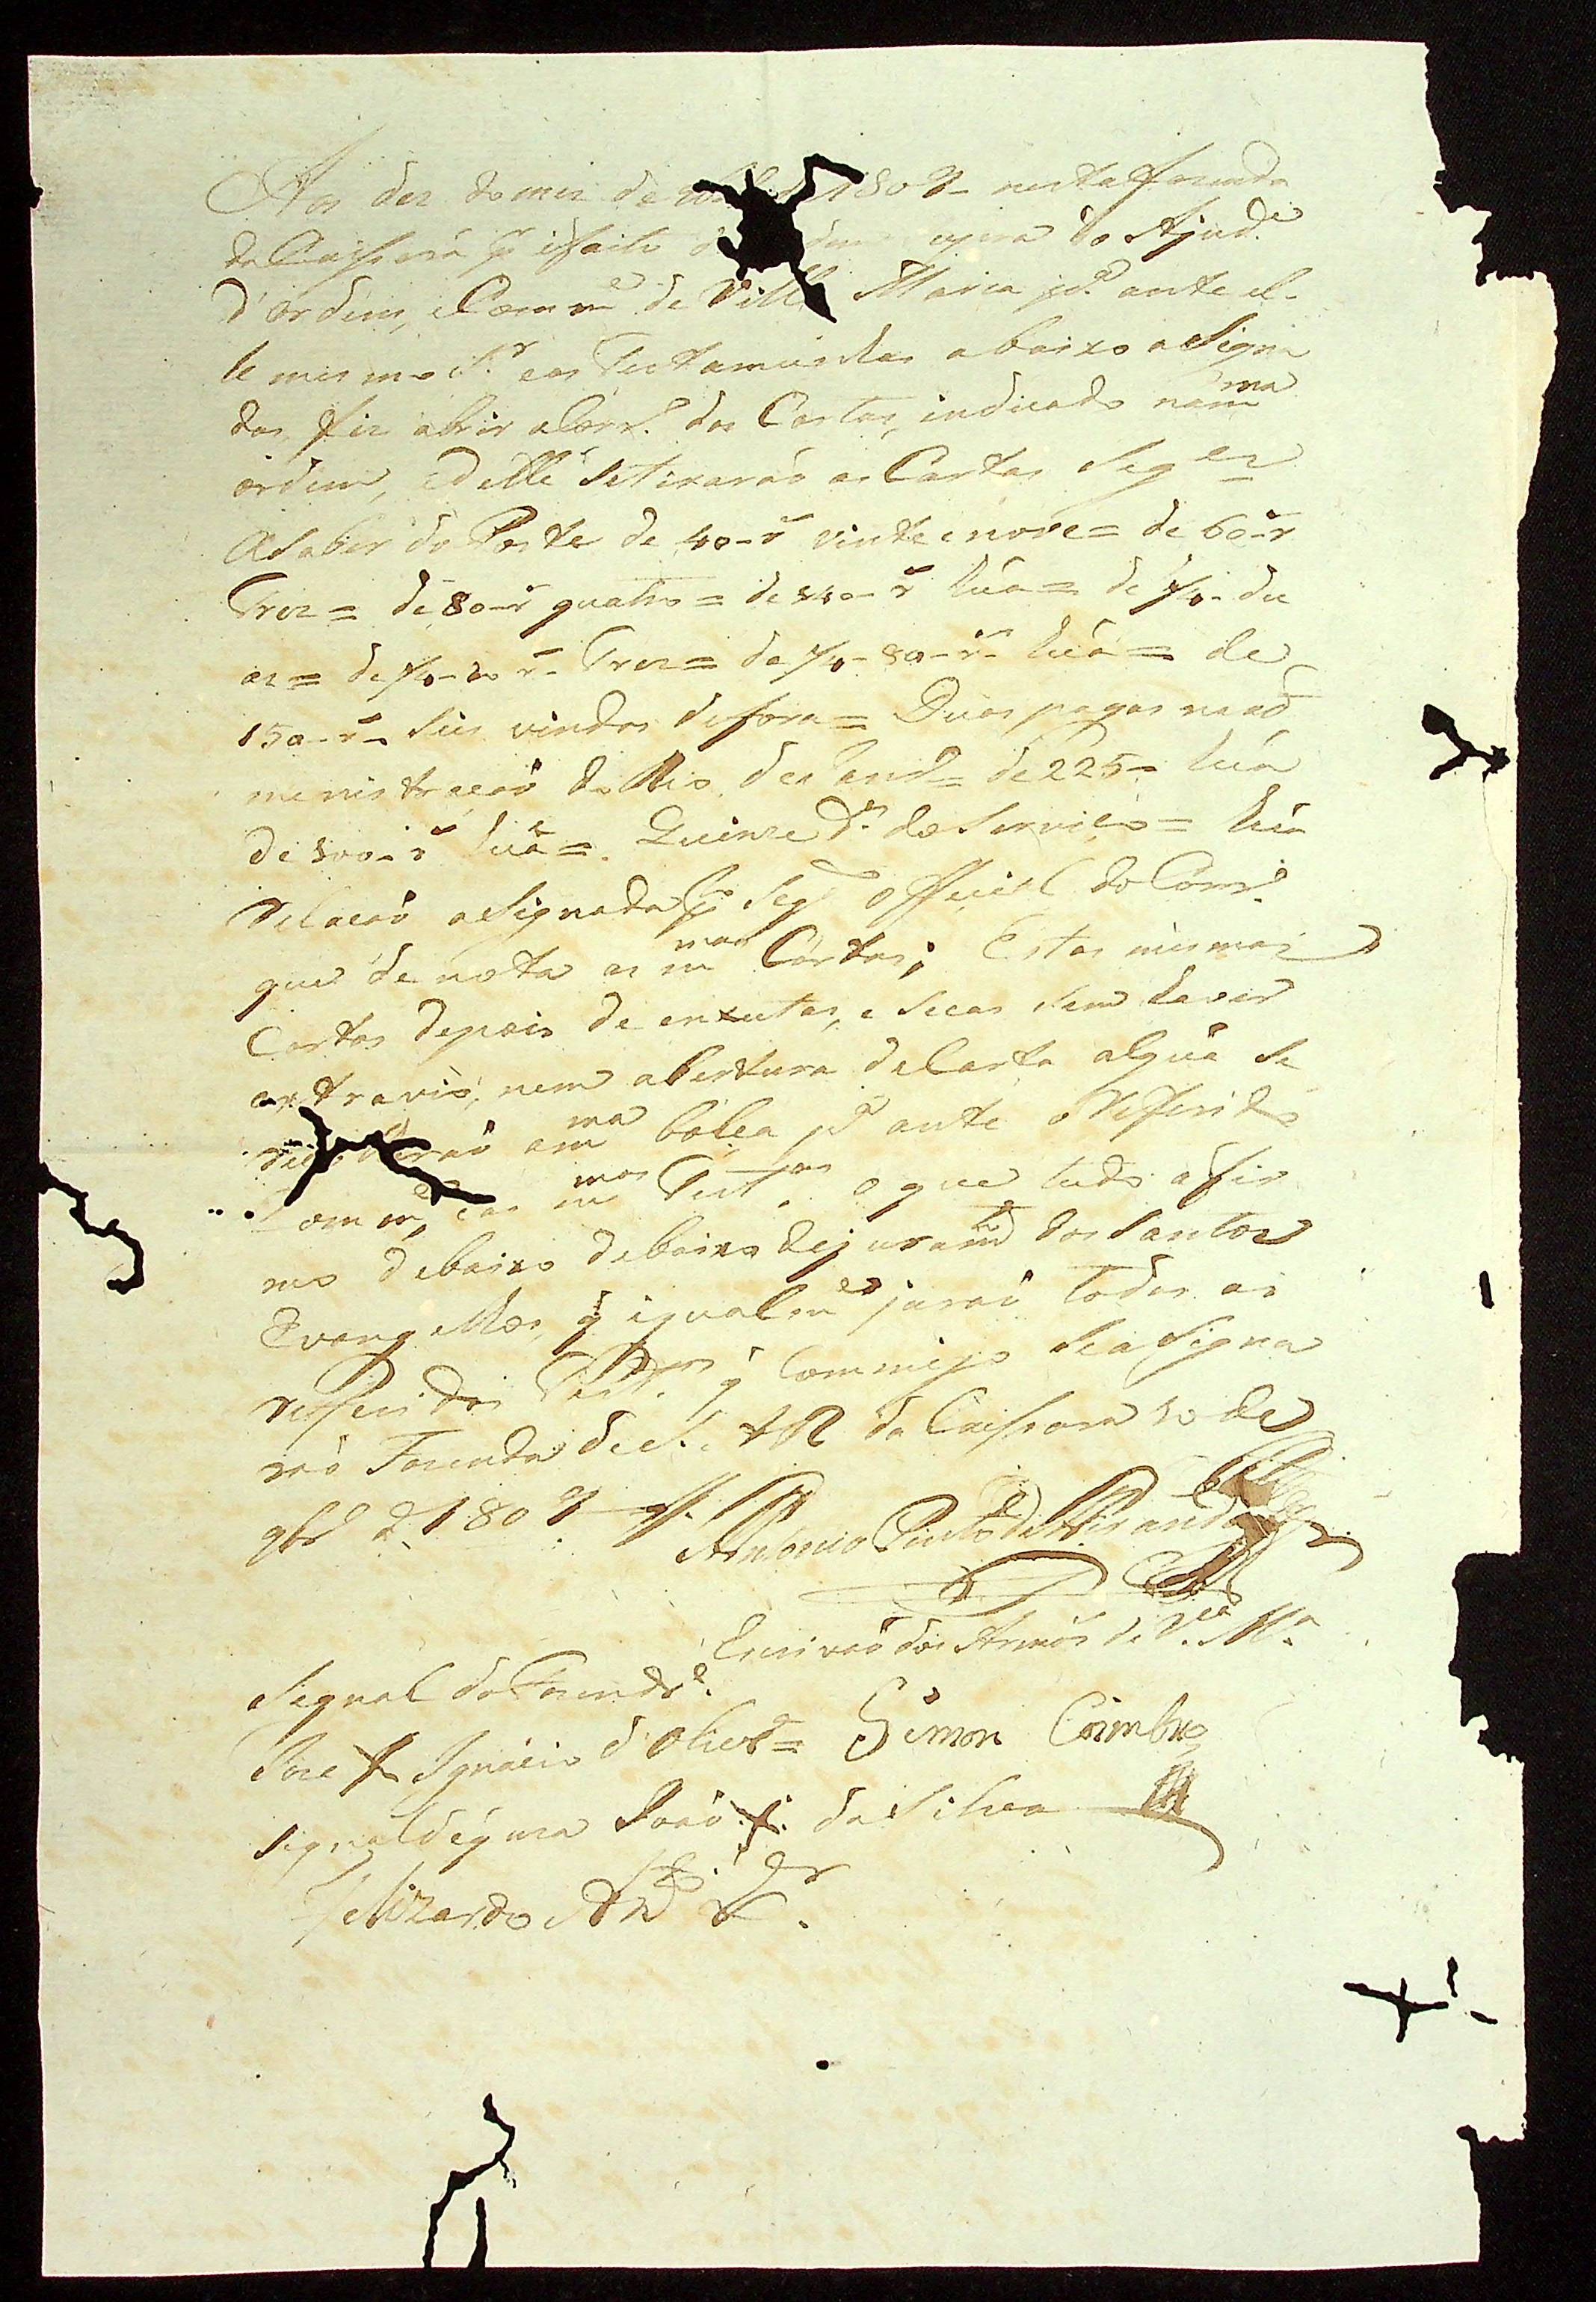 Aos dez do mez de 1807 nesta Fazenda
da Caissara p effeito do Ajud.e
d'ordens, e Comm.e de Villa Maria p.r ante el-
le mesmo S.r e as Testamunhas abaixo asigna
das, fiz abrir a das Cartas, indicado na m.ma
ordem, e delle se tirarão as Cartas Seg.es
A Saber do Porte de 40-r vinte e nove = de 60-r
Trez = de 80-r quatro = de r hũa = de 1/4- du
as = de r- Trez = de r- hũa = de
150-r- Seis vindas de fora = Duas pagas na ad
menistração do Rio de Jan.ro = de 225- hũa
de 300-r hũa =. Quinze d.as do Serviço = hũa
relação asignada p.lo Seg.do official do Corr.o
que denota as m.mas Cartas; Estas mesmas
Cartas depois de enxutas, e secas sem haver
extravio, nem abertura de Carta algũa se
am.ma bolça p.r ante o Refferido
Comm.e, e as m.mas Test.as o que tudo afir
mo debaixo debaixo de juram.to dos Santos
Evangelhos, q igualm.e jurão todas as
refferidas Test.as q Commigo se asigna
rão Fazenda de S. A R da Caissara 10 de
9br.o d 1807
Antonio Pinto de Miranda
Escrivão dos Armãs de V.la M.a
Segnal do Fazendr.o
Joze + Ignacio d'Oliver.a = Simon Coimbra
signal de g ura João + da Silva
Felizardo